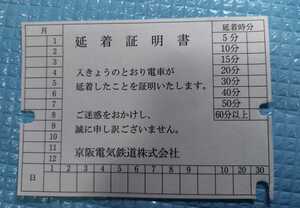 月
1
2
3
4
5
6
7
8
9
10
11
12
延着証明書
入きょうのとおり電車が
延着したことを証明いたします。
ご迷惑をおかけし、
誠に申し訳ございません。
京阪電気鉄道株式会社
延着時分
5分
10分
15分
20分
30分
40分
50分
60分以上
日 1 2 3 4 5 6 7 8 9 10 20 30